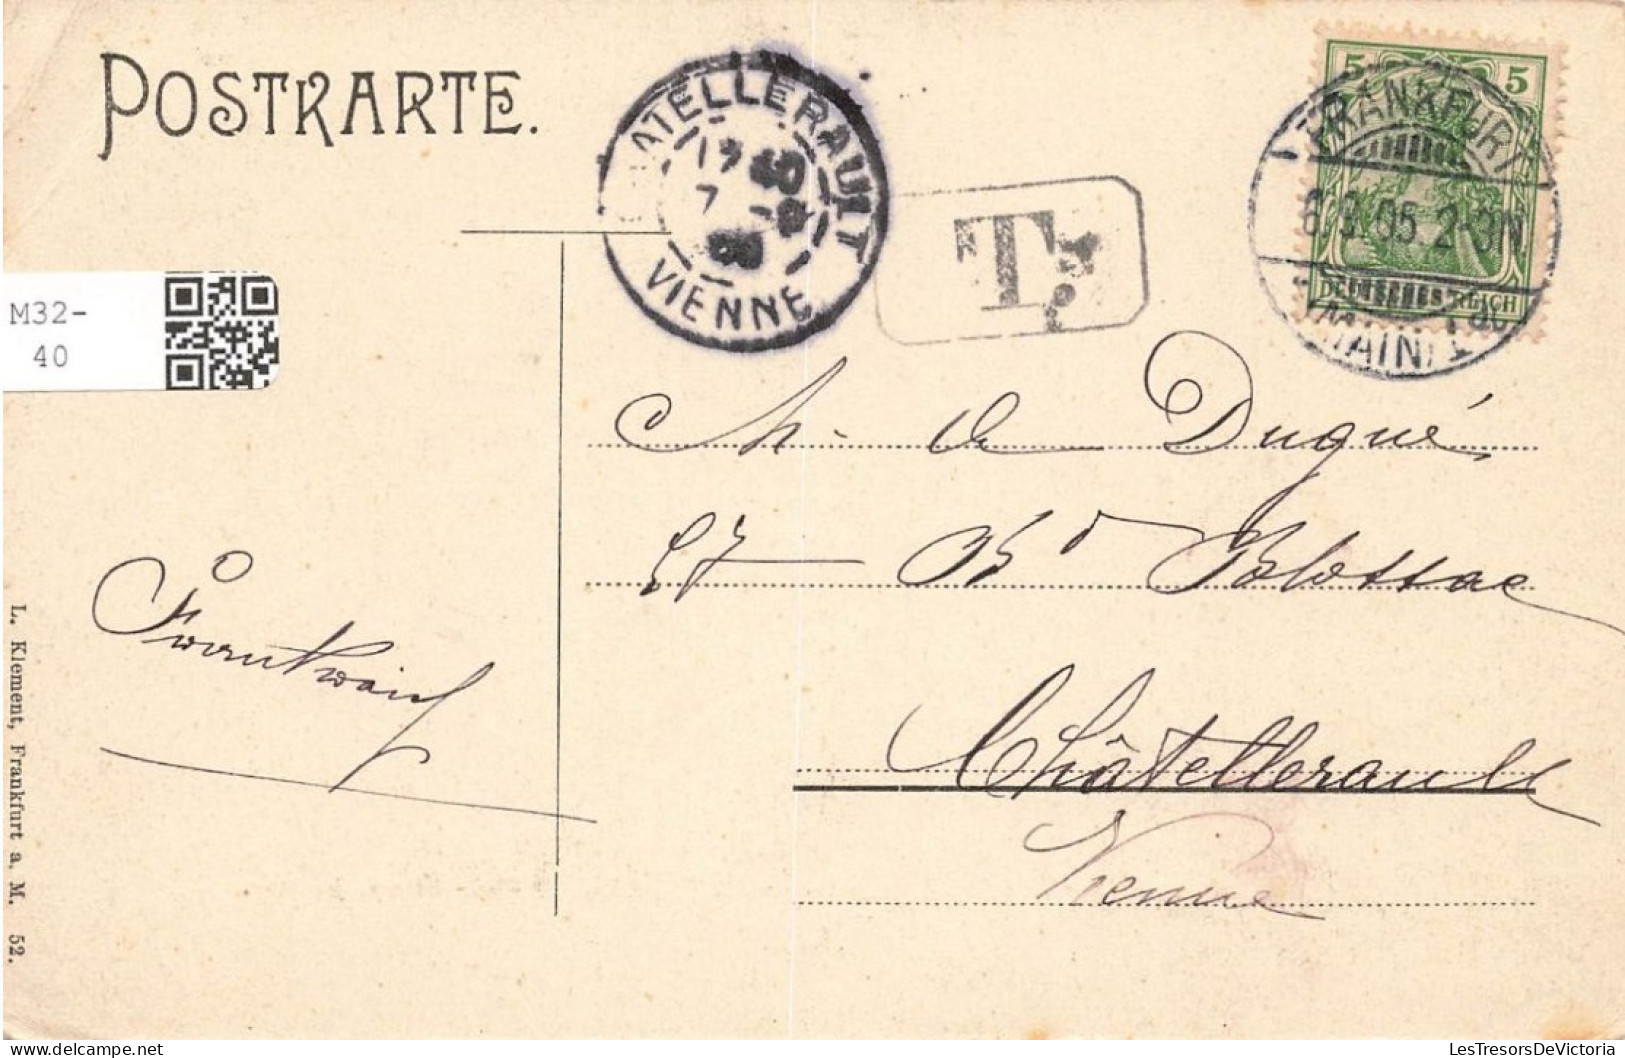 POSTKARTE.
CHATELLERAULT
17
7
VIENNE
T
5 5
FRANKFURT
6.3.05 2-3N
(MAIN) 1
DEUTSCHES REICH
M32-
40
Ch. de Dugué
57 Bd Blossac
Châtellerault
Vienne
L. Klement, Frankfurt a. M. 52.
LesTresorsDeVictoria